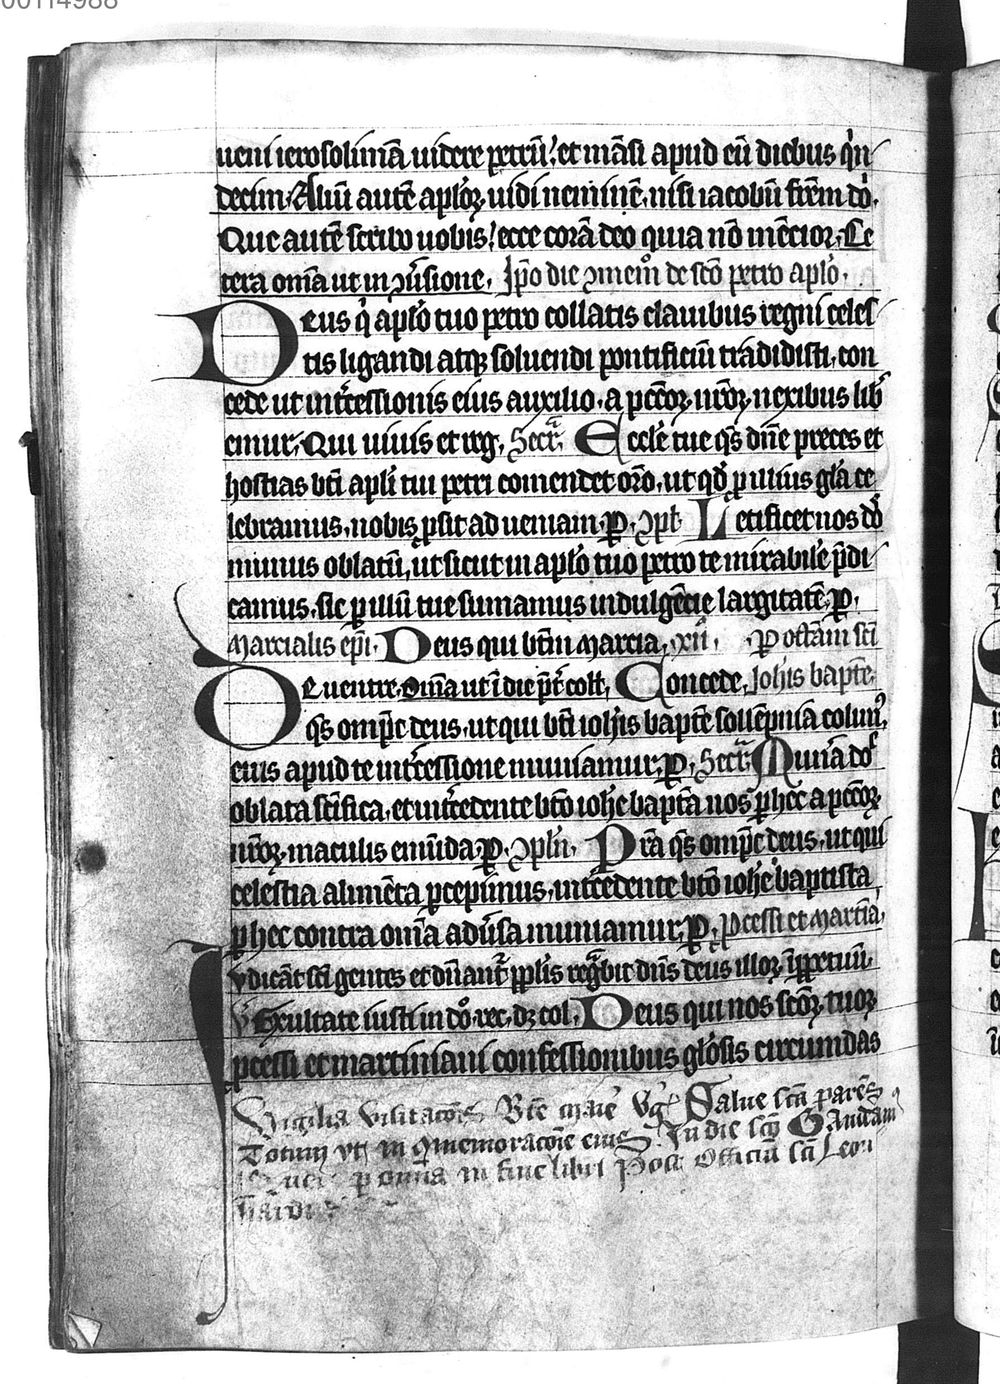 00114988
ueni ierosolimā uidere petrū ⁊ et māsi apud eū diebus qͥn
decim. Aliū autē aploꝝ uidi neminē. nisi iacobū frēm dō.
Que autē scribo uobis ⁊ ecce corā deo quia nō mēcior. Ce
tera om̄a ut in ꝯuersione. Ip̄o die ꝯmem̄ de sc̄o petro aplō.
Deus qͥ aplō tuo petro collatis clauibus regni celes
tis ligandi atqꝫ soluendi pontificiū tradidisti. con
cede ut int̄cessionis eius auxilio. a pc̄coꝝ nr̄oꝝ nexibus lib̄
emur. Qui uiuis et reg. Secr̄. Eccl̄e tue qs̄ dn̄e preces et
hostias bt̄i apl̄i tui petri comendet or̄o. ut qd̄ ꝓ illius gl̄a ce
lebramus. nobis ꝓsit ad ueniam. ꝑ. ꝯpl̄. Letificet nos dō
minus oblatū. ut sicut in aplō tuo petro te mirabilē p̄di
camus. sic ꝑ illū tue sumamus indulgēcie largitatē. ꝑ.
Marcialis ep̄i. Deus qui bt̄m marcia. xii. ꝑ octām sc̄i
De uentre. Om̄a ut ī die p̄t coll̄. Concede. Ioh̄is bapt̄e.
qs̄ omp̄c deus. ut qui bt̄i ioh̄is bapt̄e sollēpnia colim⁹.
eius apud te int̄cessione muniamur. ꝑ. Secr̄. Munā dō
oblata sc̄ifica. et int̄cedente bt̄o ioh̄e bapt̄a nos ꝑ hec a pc̄coꝝ
nr̄oꝝ maculis emūda. ꝑ. ꝯpl̄n. Pr̄a qs̄ omp̄c deus. ut qui
celestia alimēta ꝑcepimus. int̄cedente bt̄o ioh̄e baptista
ꝑ hec contra om̄ia adūsa muniamur. ꝑ. ꝓcessi et martīa.
Iudicāt sc̄i gentes et dn̄ant̄ pp̄lis regn̄bit dn̄s deus illoꝝ ī ꝑpetuū.
v̄ Exultate iusti in dō. rec. dꝫ col. Deus qui nos sc̄oꝝ tuoꝝ
ꝓcessi et martiniani confessionibus gl̄osis circumdas
Vigilia visitacōis Bt̄e marie vḡ Salue sc̄a parēs
Totum vt in ꝯmemoracōe eius In die sc̄o Gaudeam⁹
ꝑ omnia in fine libri Post officiū sc̄i Leon
hardi